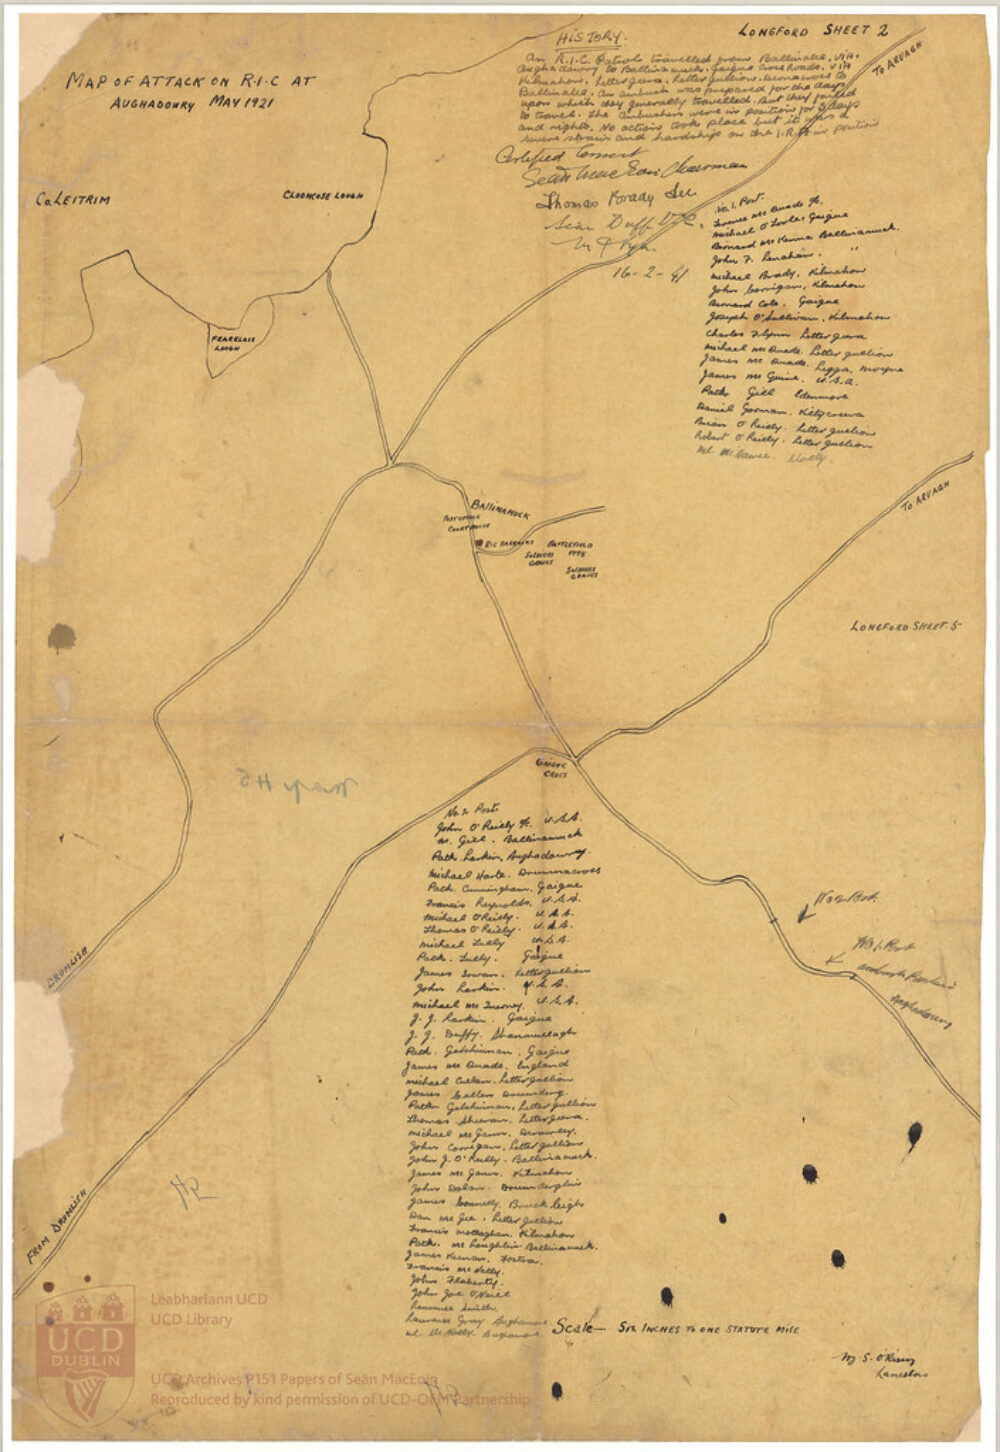 LONGFORD SHEET 2
HISTORY.
An R.I.C. Patrol travelled from Ballinalee, via.
Aughadowry to Ballinamuck. Gaigue Cross Roads, via
Kilmahon, Letter geera, Letter gullion, Drumacross to
Ballinalee. An ambush was prepared for the days
upon which they generally travelled. But they failed
to travel. The ambushers were in position for 3 days
and nights. No action took place but it was a
severe strain and hardship on the I.R.A. in position
TO ARVAGH
MAP OF ATTACK ON R.I.C AT
AUGHADOWRY MAY 1921
Certified Correct
Seán Mac Eoin Chairman
Thomas Brady Sec
Sean Duff
16-2-41
CO. LEITRIM
CLOONCOSE LOUGH
FEARGLASS
LOUGH
No. 1. Post.
Terence Mc Quade
Michael O'Toole Gaigue
Bernard McKenna Ballinamuck.
John F. Lenahan "
Michael Brady. Kilmahon
John Corrigan, Kilmahon
Bernard Cole. Gaigue
Joseph O'Sullivan, Kilmahon
Charles Flynn Letter geera
Michael Mc Quade. Letter gullion
James Mc Quade. Legga, Moyne
James Mc Guire. U.S.A.
Patk Gill Edenmore
Daniel Gorman. Killycreeva
Brian O'Reilly. Letter gullion
Robert O'Reilly. Letter gullion
BALLINAMUCK
POST OFFICE
COURT HOUSE
RIC BARRACKS
BATTLEFIELD
1798
SOLDIERS
GRAVES
SOLDIERS
GRAVES
TO ARVAGH
LONGFORD SHEET 5
GAIGUE
CROSS
Map H5
No. 2 Post.
John O'Reilly U.S.A.
M. Gill. Ballinamuck
Patk. Larkin, Aughadowry.
Michael Harte. Drumnacross
Patk. Cunningham, Gaigue
Francis Reynolds, U.S.A.
Michael O'Reilly. U.S.A.
Thomas O'Reilly. U.S.A.
Michael Tully U.S.A.
Patk. Tully. Gaigue
James Letter gullion
John Larkin. U.S.A.
Michael Mc Inerney. U.S.A.
J. J. Larkin. Gaigue
J. J. Duffy. Shanmullagh
Patk. Gaigue
James Mc Quade. England
Michael Cullen. Letter gullion
James Cullen
Patk Letter gullion
Thomas Sheeran. Letter geera.
Michael Mc Gann.
John Corrigan, Letter gullion
John J. O'Reilly. Ballinamuck.
James Mc Gann. Kilmahon
John Dolan.
James Donnelly.
Dan Mc Gee. Letter gullion
Francis Kilmahon
Patk. Mc Loughlin. Ballinamuck.
James Keenan.
Francis Mc Nally.
John Flaherty.
John Joe O'Neill
Laurence Smith.
Laurence Gray Aughamore
Mc Nally. Aughamore
No 2 Post.
No 1. Post
Ambush Position
Aughadowry
DRUMLISH
FROM DRUMLISH
Scale— SIX INCHES TO ONE STATUTE MILE
Lanesboro
UCD
DUBLIN
Leabharlann UCD
UCD Library
UCD Archives P151 Papers of Seán MacEoin
Reproduced by kind permission of UCD-OFM Partnership